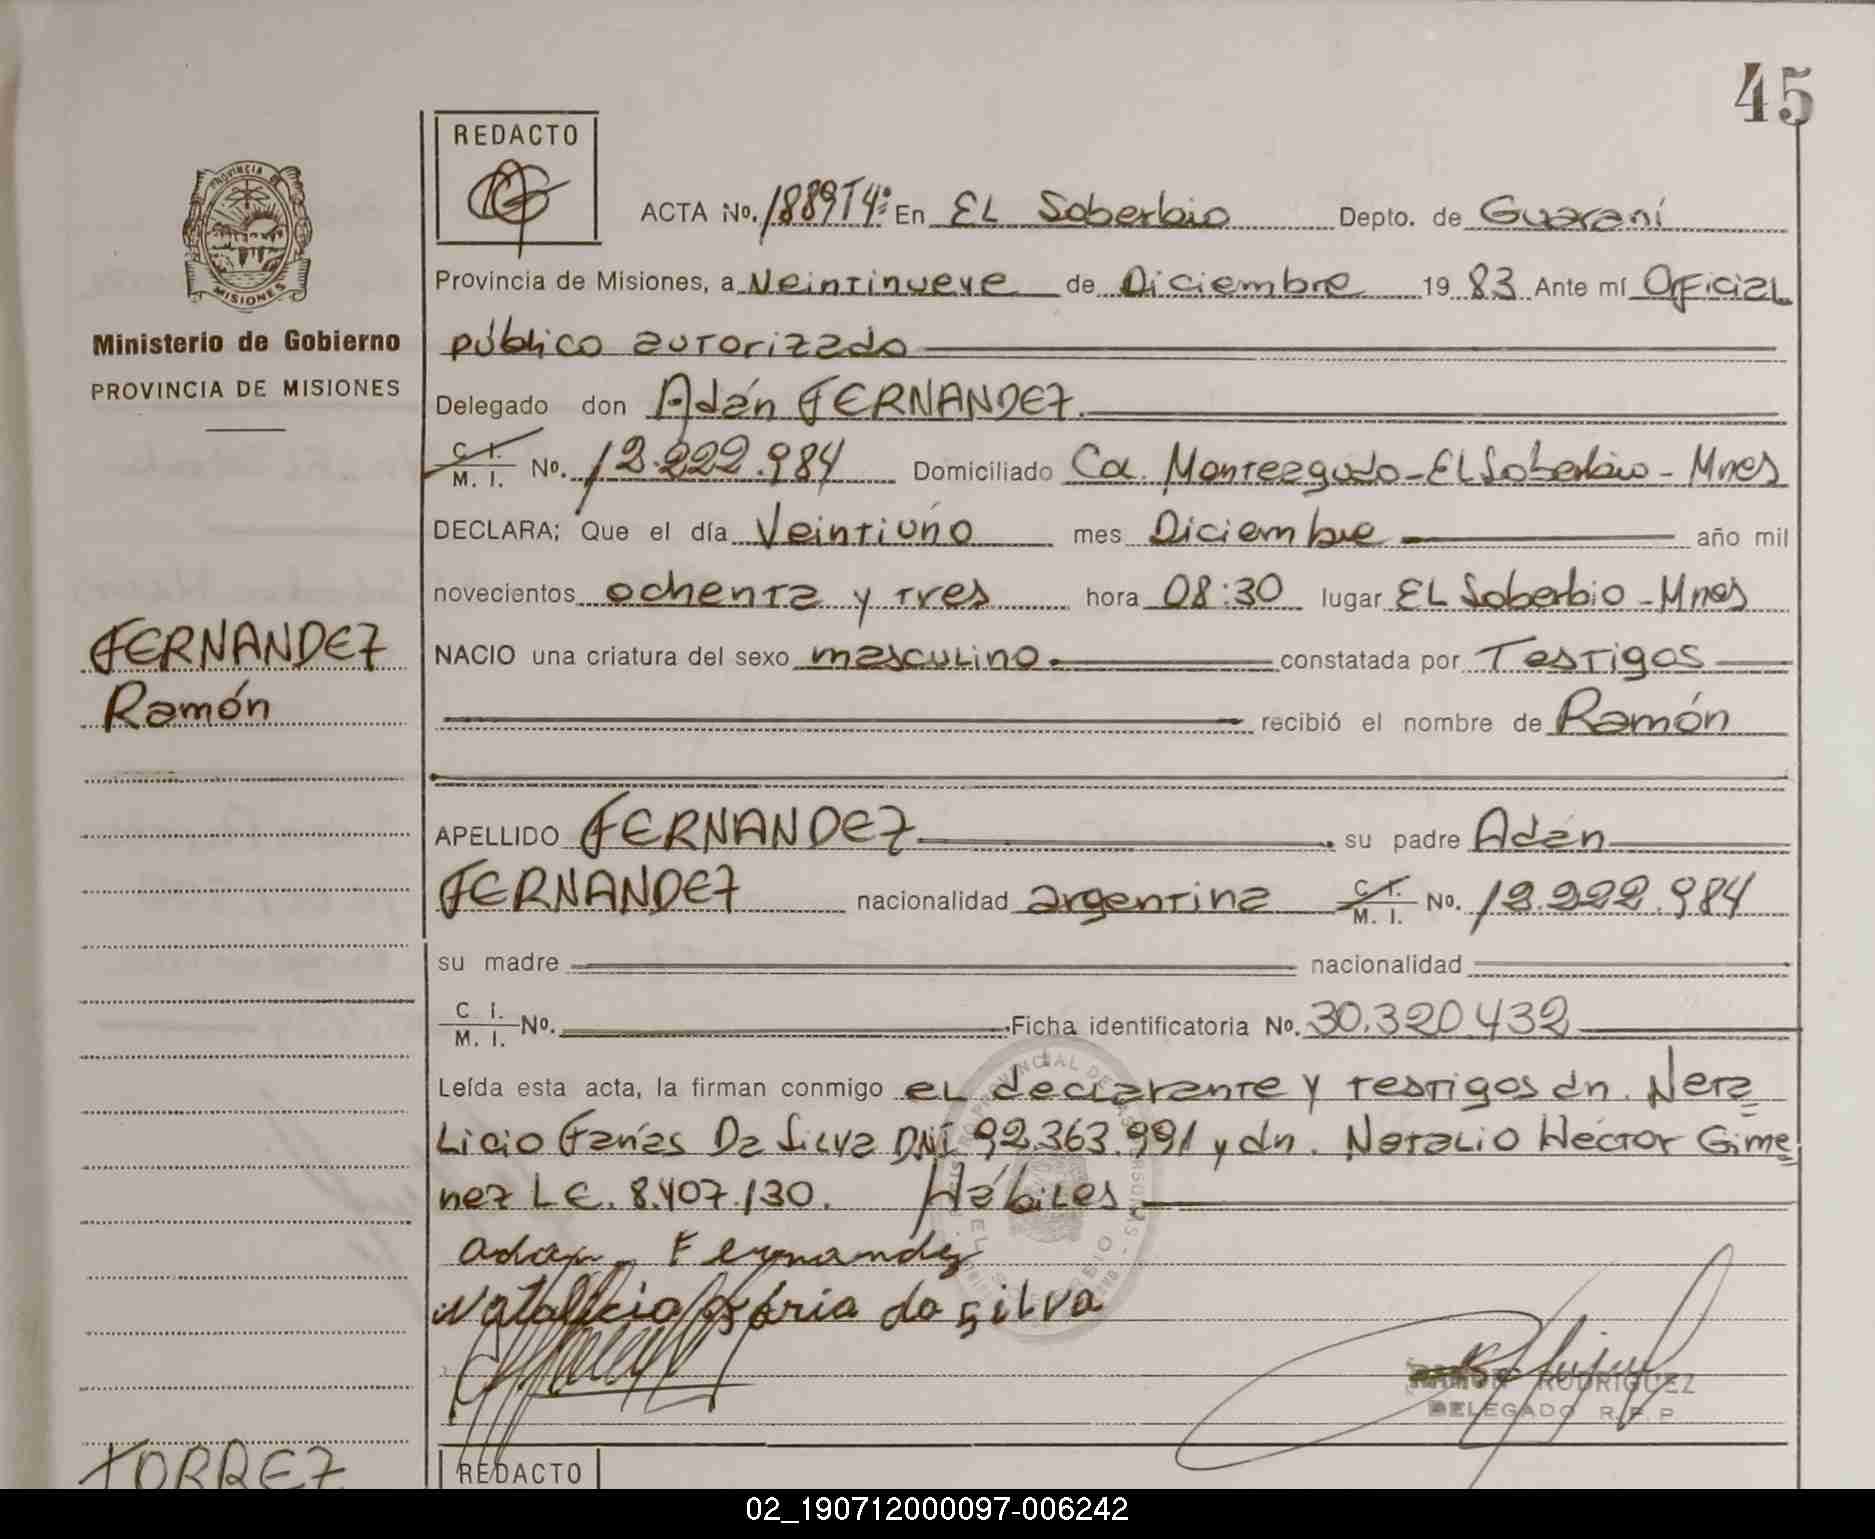 45
REDACTO
ACTA No. 1889T4º En EL Soberbio Depto. de Guaraní
Provincia de Misiones, a Veintinueve de Diciembre 19 83 Ante mí Oficial
público autorizado
Delegado don Adán FERNANDEZ.
C. I. M. I. No. 12.222.984 Domiciliado Ca. Monteagudo-EL Soberbio - Mnes
DECLARA; Que el día Veintiuno mes Diciembre año mil
novecientos ochenta y tres hora 08:30 lugar EL Soberbio - Mnes
NACIO una criatura del sexo masculino. constatada por Testigos
recibió el nombre de Ramón
APELLIDO FERNANDEZ su padre Adán
FERNANDEZ nacionalidad argentina C. I. M. I. No. 12.222.984
su madre nacionalidad
C I. M. I. No. Ficha identificatoria No. 30.320.432
Leída esta acta, la firman conmigo el declarante y testigos dn. Nata=
Licio Farías Da Silva DNI 92.363.991 y dn. Natalio Héctor Gime=
nez L E. 8.407.130. Hábiles
Adan Fernandez
Natalicio faria da silva
RAMON RODRIGUEZ
DELEGADO R. P. P.
REDACTO
PROVINCIA DE
MISIONES
Ministerio de Gobierno
PROVINCIA DE MISIONES
FERNANDEZ
Ramón
TORREZ
02_190712000097-006242